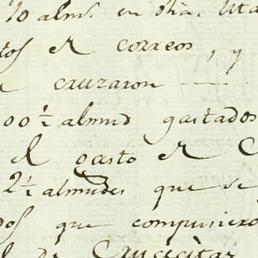 10 alms. en dha.
tos de correos, y
cruzaron
00 ½ almud gastados
el gasto de C
2½ almudes que se
dos que compusiero